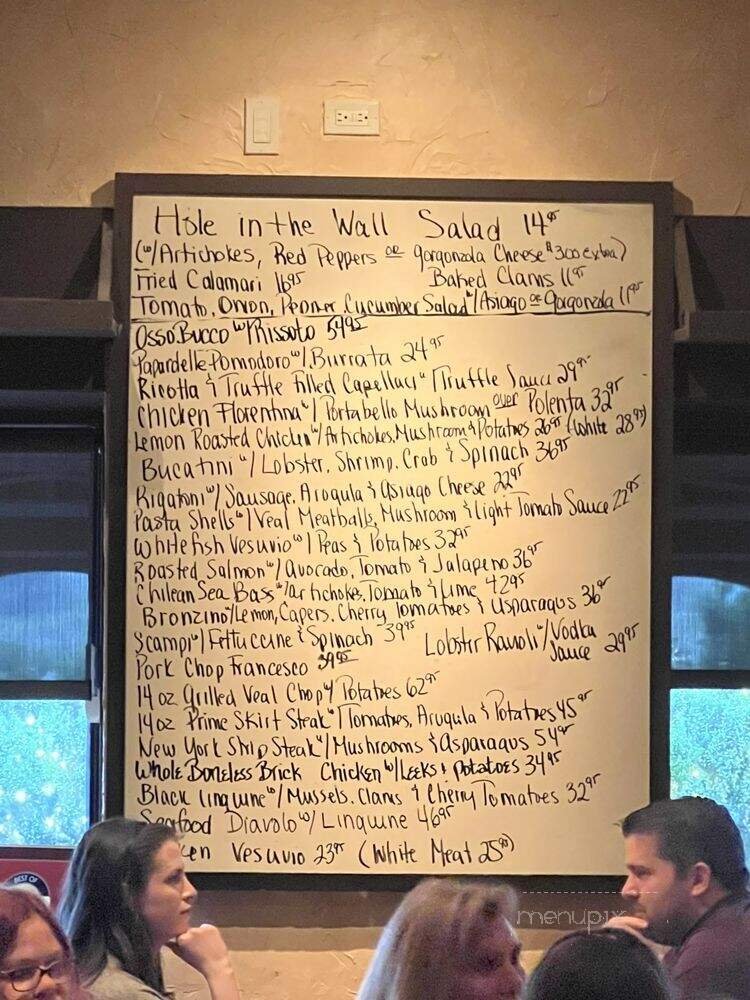 Hole in the Wall Salad 14⁹⁵
(w/Artichokes, Red Peppers or Gorgonzola Cheese $3.00 extra)
Fried Calamari 16⁹⁵ Baked Clams 11⁹⁵
Tomato, Onion, Pepper, Cucumber Salad w/Asiago or Gorgonzola 11⁹⁵
Osso Bucco w/Rissoto 54⁹⁵
Papardelle Pomodoro w/Burrata 24⁹⁵
Ricotta & Truffle Filled Capellaci w/Truffle Sauce 29⁹⁵
Chicken Florentina w/Portabello Mushroom over Polenta 32⁹⁵
Lemon Roasted Chicken w/Artichokes, Mushroom & Potatoes 26⁹⁵ (White 28⁹⁵)
Bucatini w/Lobster, Shrimp, Crab & Spinach 36⁹⁵
Rigatoni w/Sausage, Arugula & Asiago Cheese 22⁹⁵
Pasta Shells w/Veal Meatballs, Mushroom & Light Tomato Sauce 22⁹⁵
Whitefish Vesuvio w/Peas & Potatoes 32⁹⁵
Roasted Salmon w/Avocado, Tomato & Jalapeno 36⁹⁵
Chilean Sea Bass w/Artichokes, Tomato & Lime 42⁹⁵
Bronzino w/Lemon, Capers, Cherry Tomatoes & Asparagus 36⁹⁵
Scampi w/Fettuccine & Spinach 39⁹⁵ Lobster Ravioli w/Vodka Sauce 29⁹⁵
Pork Chop Francesco 39⁹⁵
14 oz Grilled Veal Chop w/Potatoes 62⁹⁵
14 oz Prime Skirt Steak w/Tomatoes, Arugula & Potatoes 45⁹⁵
New York Strip Steak w/Mushrooms & Asparagus 54⁹⁵
Whole Boneless Brick Chicken w/Leeks & Potatoes 34⁹⁵
Black Linguine w/Mussels, Clams & Cherry Tomatoes 32⁹⁵
Seafood Diavolo w/Linguine 46⁹⁵
ken Vesuvio 23⁹⁵ (White Meat 25⁹⁵)
BEST OF
menupix